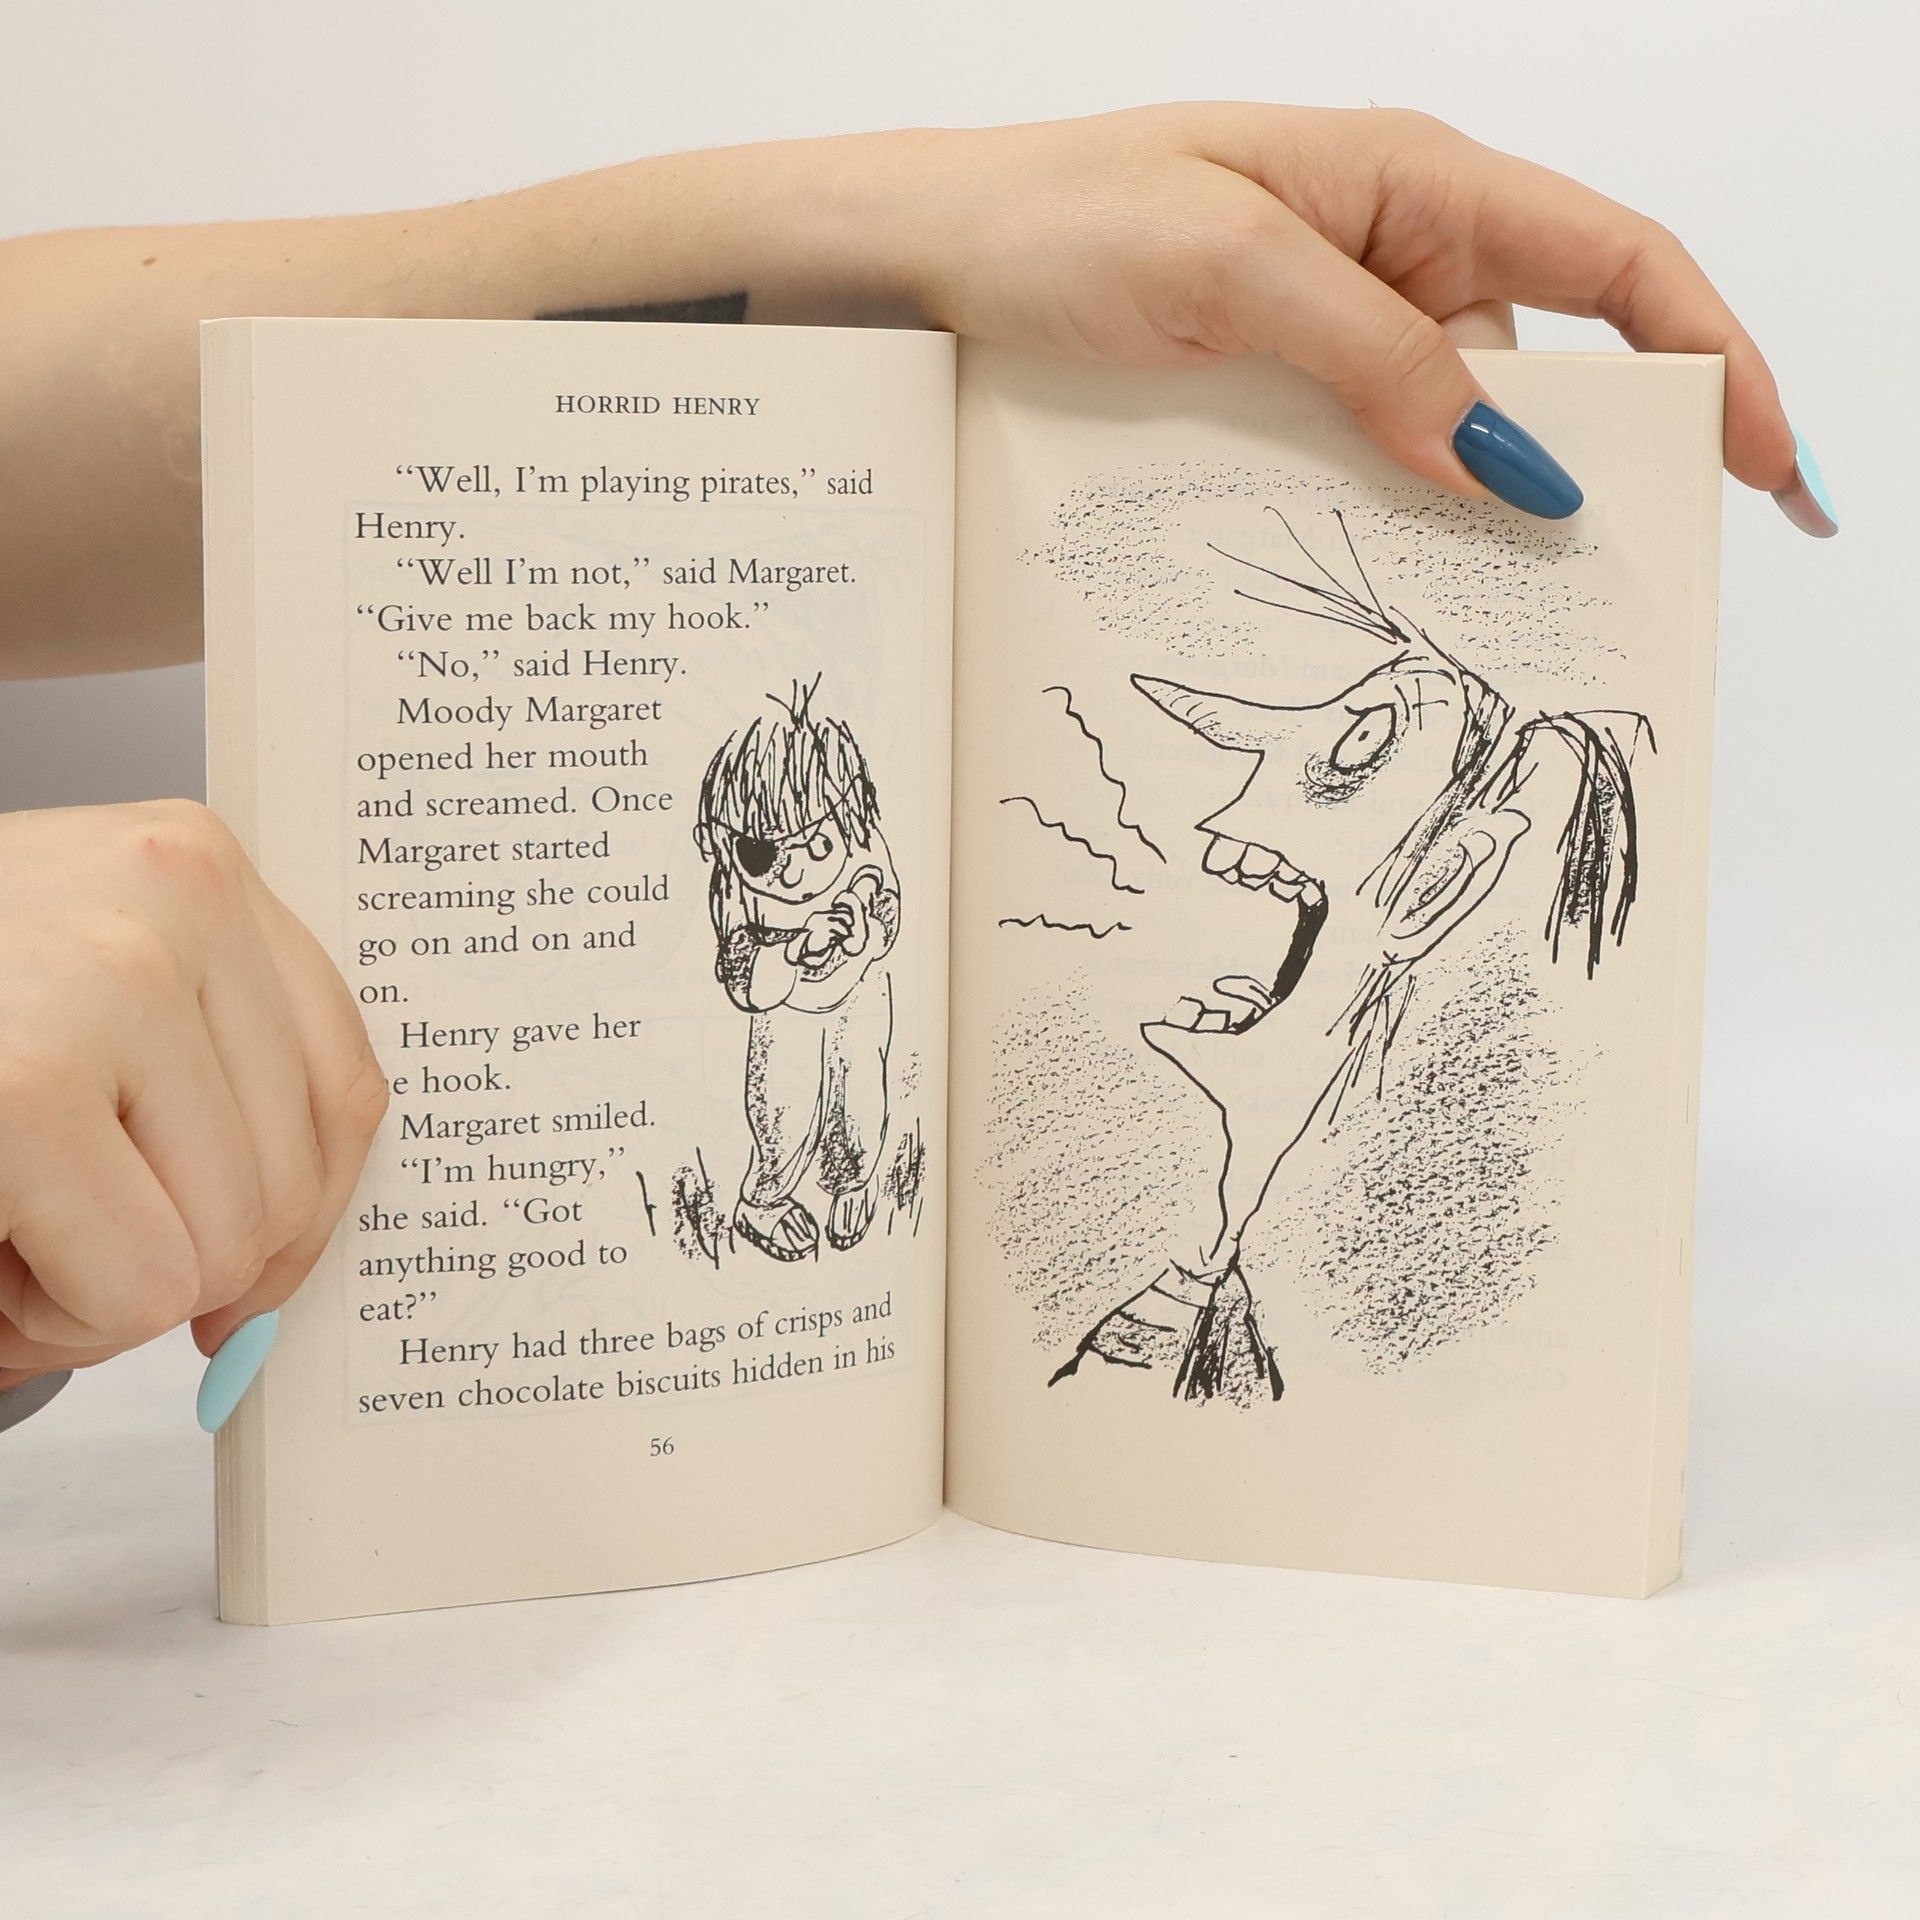 HORRID HENRY
“Well, I’m playing pirates,” said
Henry.
“Well I’m not,” said Margaret.
“Give me back my hook.”
“No,” said Henry.
Moody Margaret
opened her mouth
and screamed. Once
Margaret started
screaming she could
go on and on and
on.
Henry gave her
hook.
Margaret smiled.
“I’m hungry,”
she said. “Got
anything good to
eat?”
Henry had three bags of crisps and
seven chocolate biscuits hidden in his
56